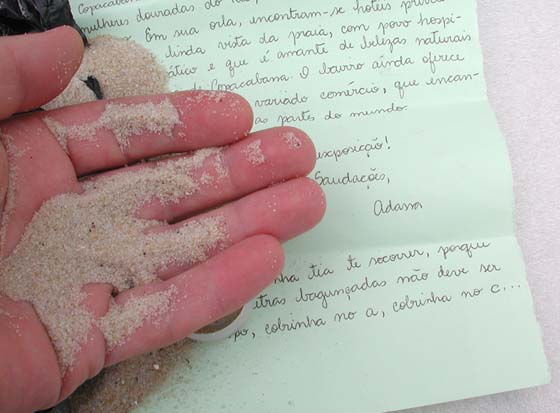 Copacabana
mulheres douradas do
Em sua orla, encontram-se hotéis
linda vista da praia, com povo hospi-
ático e que é amante de belezas naturais
Copacabana. O bairro ainda oferece
variado comércio, que encan-
as partes do mundo.
exposição!
Saudações,
Adassa
nha tia te socorrer, porque
etras bagunçadas não deve ser
po, cobrinha no a, cobrinha no c...